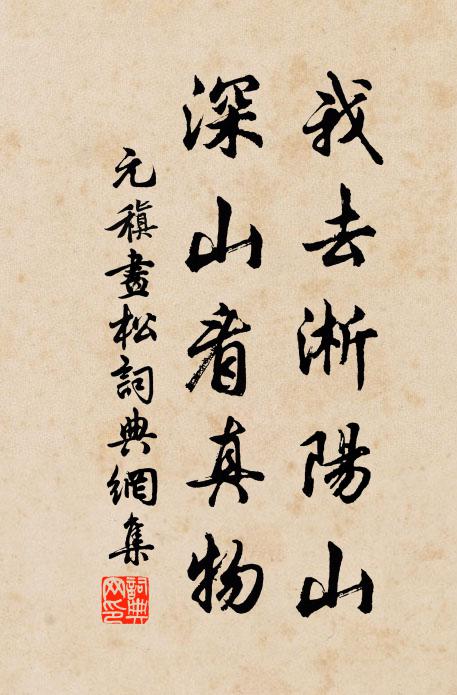 我去淅陽山
深山看真物
元稹畫松詞典網集
詞典網印